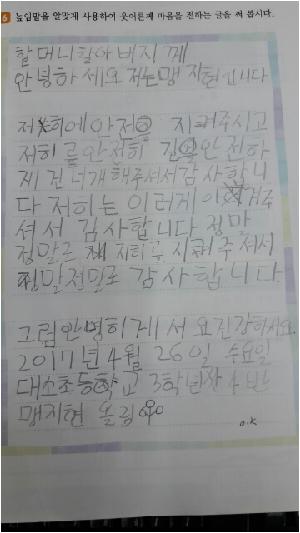 6 높임말을 알맞게 사용하여 웃어른께 마음을 전하는 글을 써 봅시다.
할머니할아버지께
안녕하세요 저는맹지현입니다
저희에안전을 지켜주시고
저희를안전히 길을안전하
게 건너개해주셔서감사합니
다 저희는 이러게 이 겨주
셔서 감사합니다 정마
정말로 저히를 지켜주셔서
정말정말로 감사합니다.
그럼안녕히게서요건강하세요.
2017년4월 26일 수요일
대소초등학교 3학년 4반
맹지현 올림
o.k